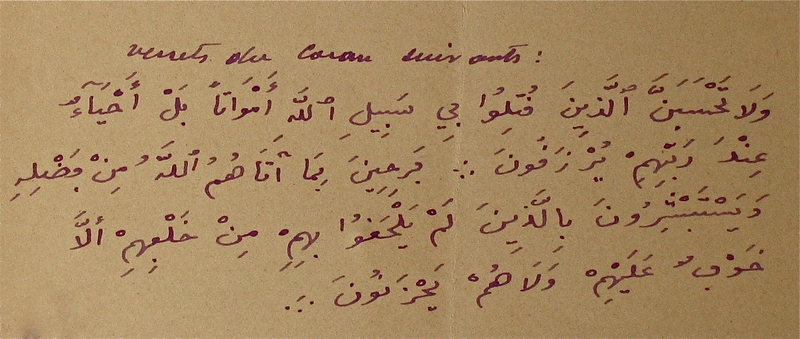 versets du Coran suivants :
وَلَا تَحْسَبَنَّ ٱلَّذِينَ قُتِلُوا فِي سَبِيلِ ٱللَّهِ أَمْوَاتاً بَلْ أَحْيَآءٌ
عِنْدَ رَبِّهِمْ يُرْزَقُونَ ∴ فَرِحِينَ بِمَا آتَاهُمُ ٱللَّهُ مِنْ فَضْلِهِ
وَيَسْتَبْشِرُونَ بِالَّذِينَ لَمْ يَلْحَقُوا بِهِمْ مِنْ خَلْفِهِمْ أَلَّا
خَوْفٌ عَلَيْهِمْ وَلَا هُمْ يَحْزَنُونَ ∴